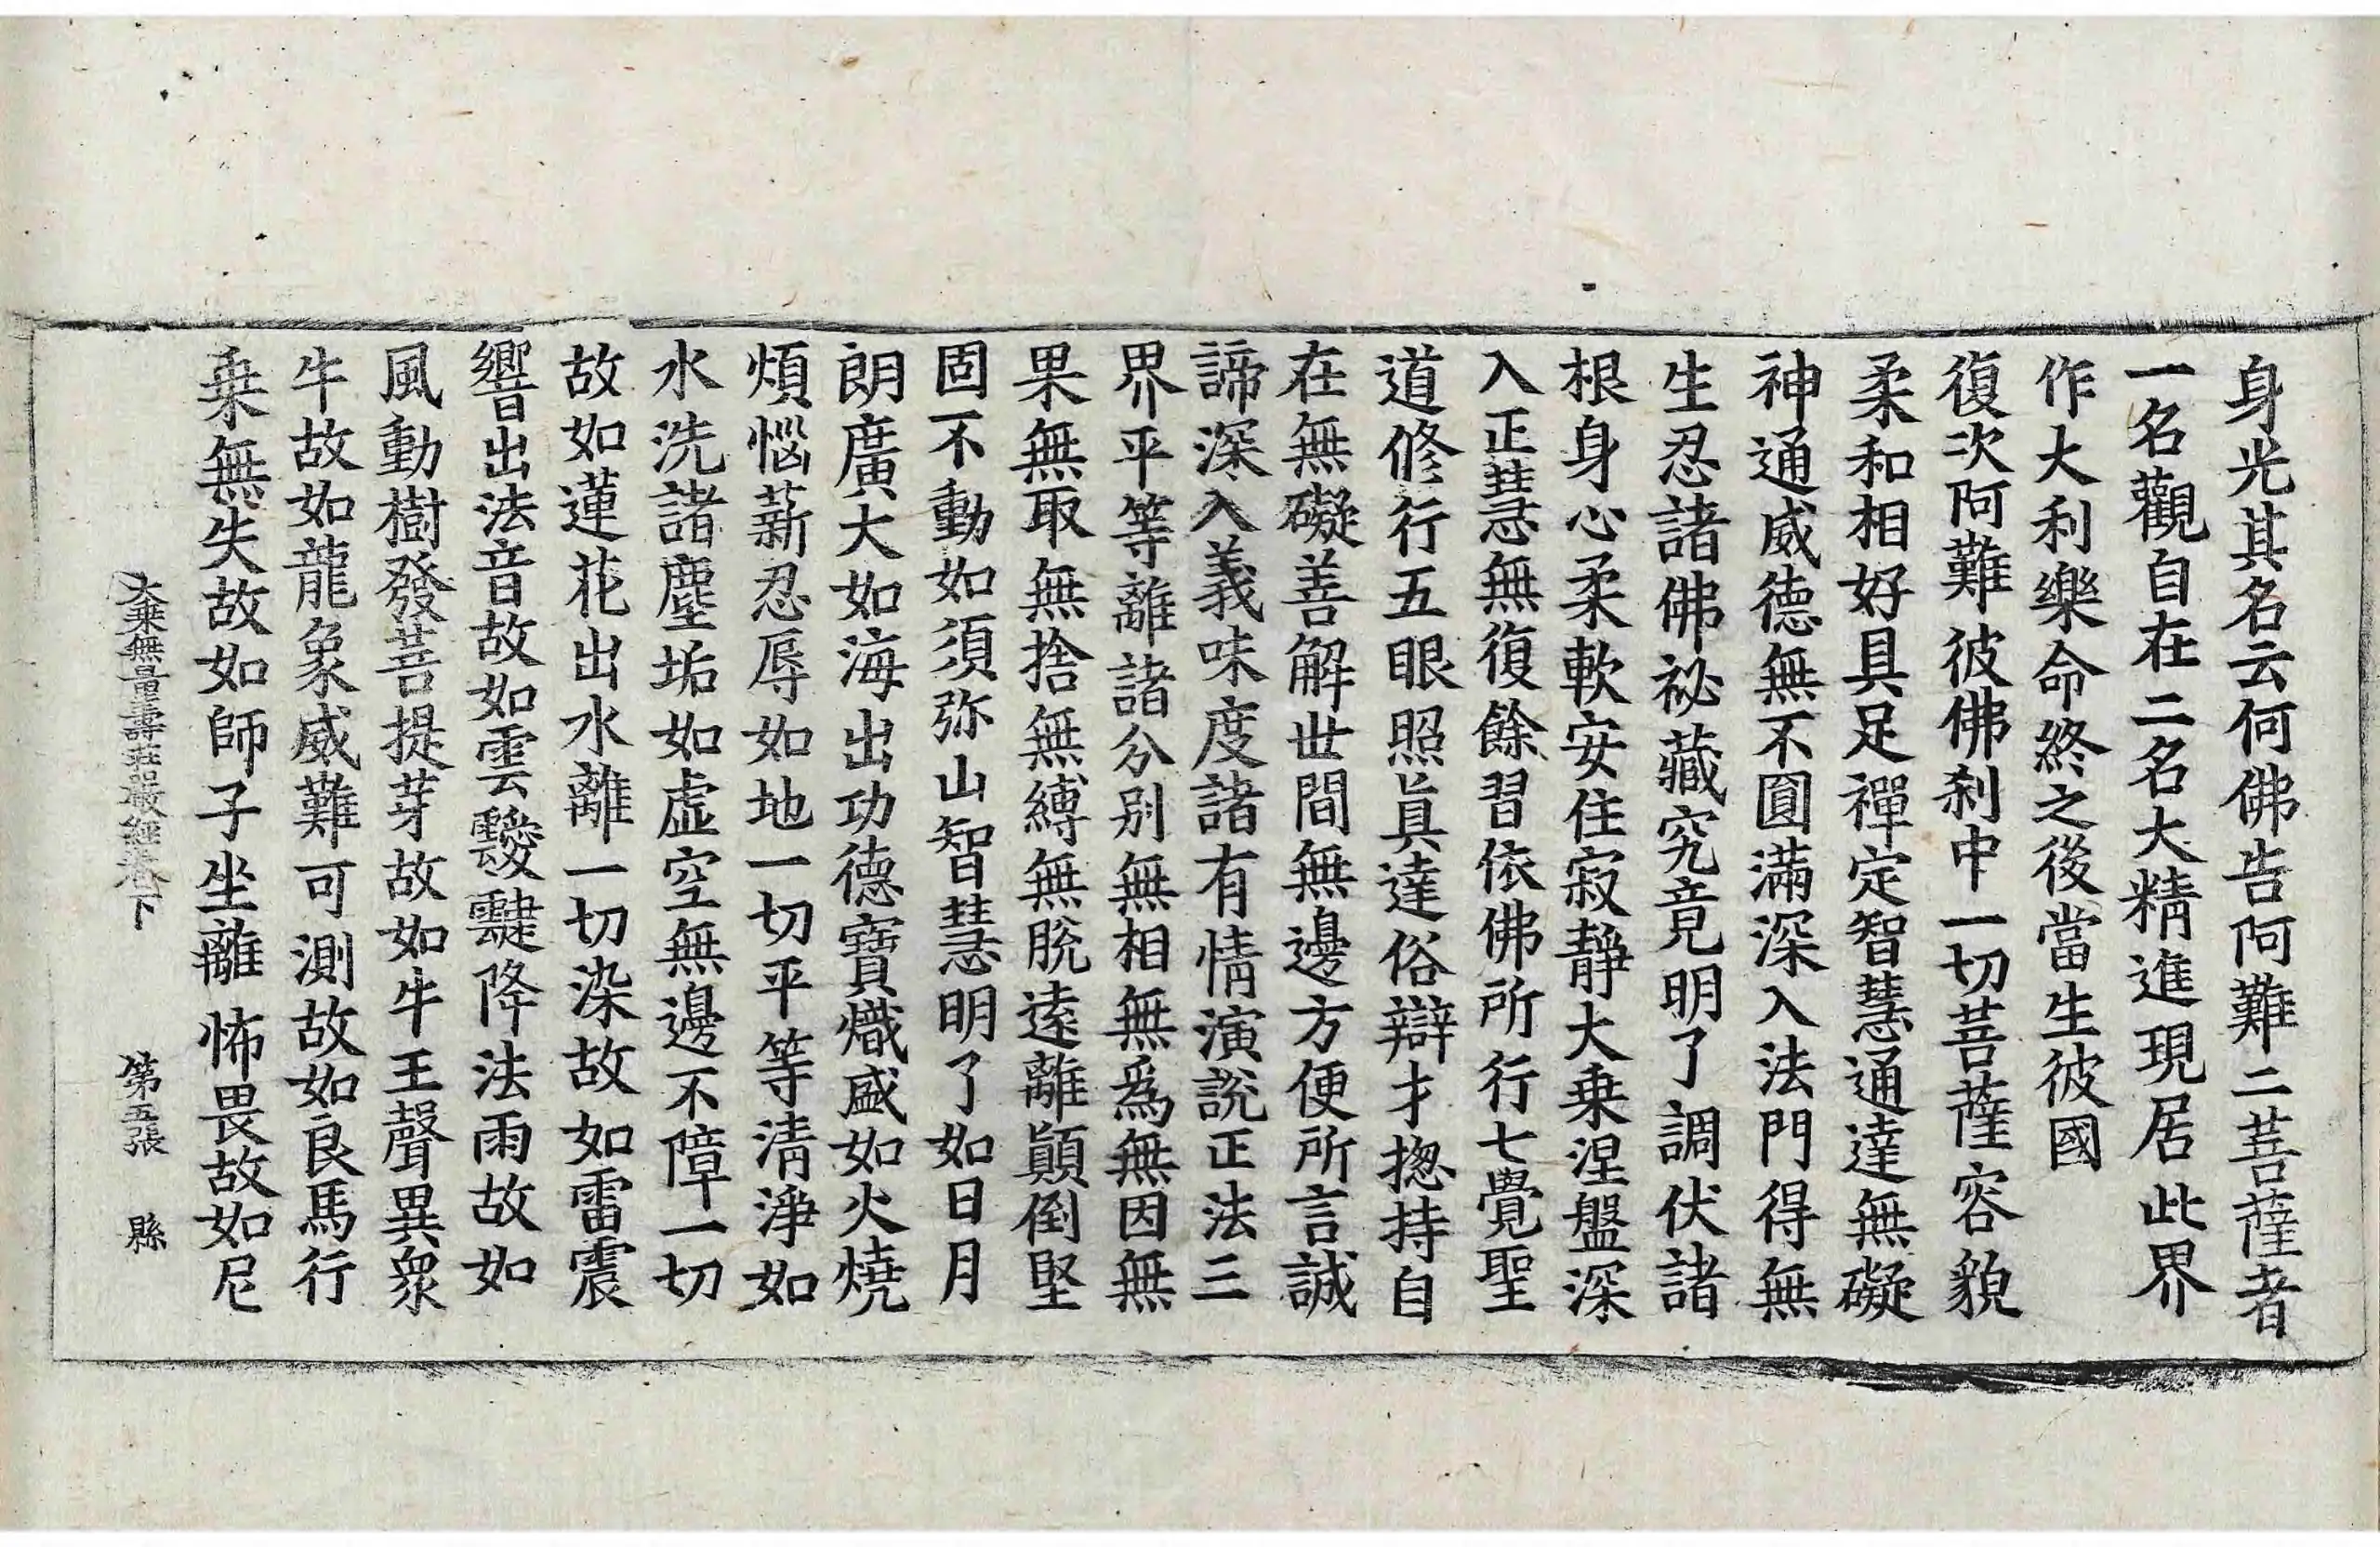 身光其名云何佛告阿難二菩薩者
一名觀自在二名大精進現居此界
作大利樂命終之後當生彼國
復次阿難彼佛刹中一切菩薩容貌
柔和相好具足禪定智慧通達無礙
神通威德無不圓滿深入法門得無
生忍諸佛祕藏究竟明了調伏諸
根身心柔軟安住寂靜大乗涅盤深
入正慧無復餘習依佛所行七覺聖
道修行五眼照眞達俗辯才揔持自
在無礙善解世間無邊方便所言誠
諦深入義味度諸有情演說正法三
界平等離諸分别無相無爲無因無
果無取無捨無縛無脫遠離顚倒堅
固不動如須弥山智慧明了如日月
朗廣大如海出功德寶熾盛如火燒
煩惱薪忍辱如地一切平等清淨如
水洗諸塵垢如虛空無邊不障一切
故如蓮花出水離一切染故如雷震
響出法音故如雲靉靆降法雨故如
風動樹發菩提芽故如牛王聲異衆
牛故如龍象威難可測故如良馬行
乗無失故如師子坐離怖畏故如尼
大乗無量壽莊嚴經卷下 第五張 縣